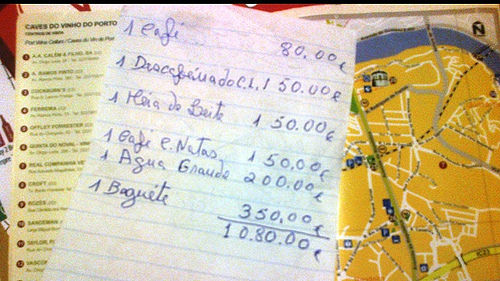 CAVES DO VINHO DO PORTO
CENTROS DE VISITA
Port Wine Cellars / Caves du Vin de Port
1 A.A. CALEM & FILHO, SA
2 A. RAMOS PINTO
3 COCKBURN'S
4 FERREIRA
5 OFFLEY FORRESTER
6 QUINTA DO NOVAL
7 REAL COMPANHIA VE
8 CROFT
9 ROZÈS
10 SANDEMAN
11 TAYLOR,
12 VASCO
1 Café 80.00€
1 Descafeinado C.L. 150.00€
1 Meia de Leite 150.00€
1 Café C. Natas 150.00€
1 Agua Grande 200.00€
1 Baguete 350.00€
1080.00€
N
IC23